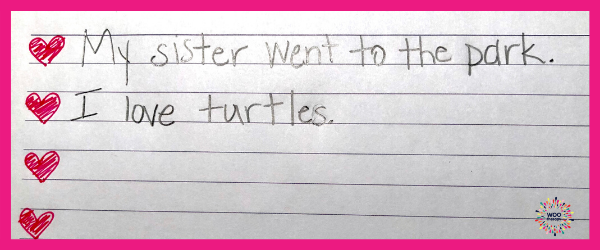 My sister went to the park.
I love turtles.
WOO